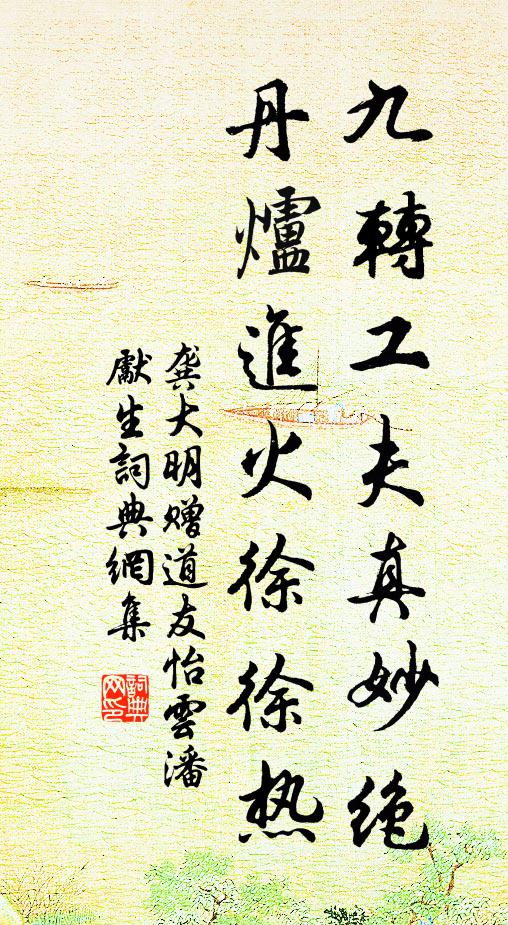 九轉工夫真妙絶
丹爐進火徐徐热
龚大明赠道友怡雲潘
獻生詞典網集
詞典网印